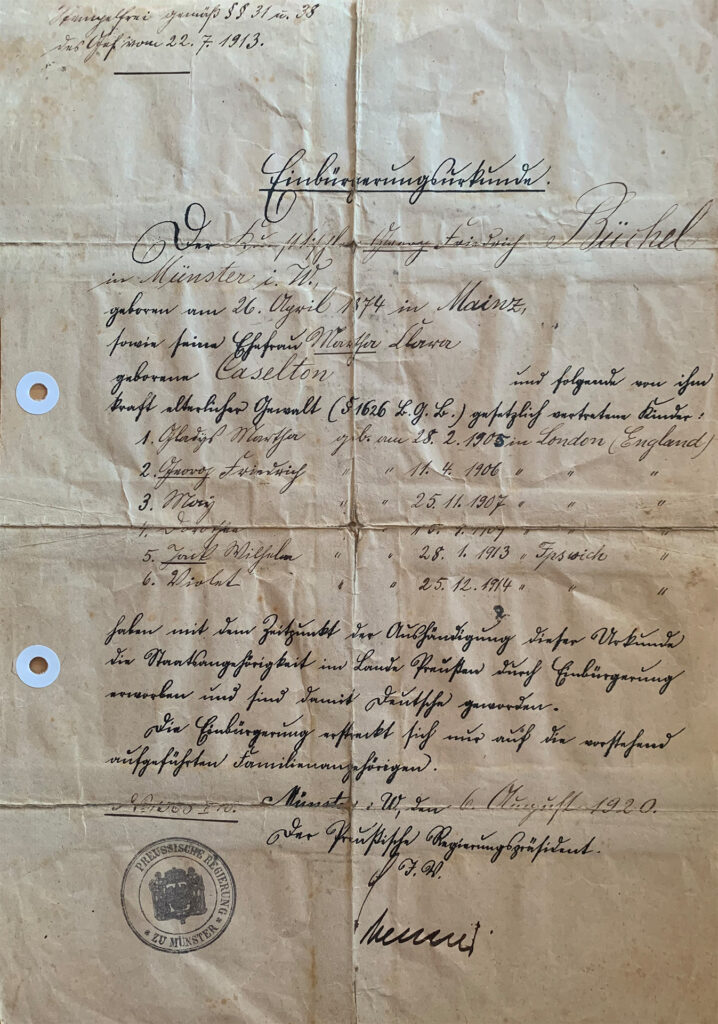 Stempelfrei gemäß §§ 31 u. 38
des Ges vom 22. 7. 1913.
Einbürgerungsurkunde.
Der Georg Friedrich Büchel
in Münster i. W.,
geboren am 26. April 1874 in Mainz,
sowie seine Ehefrau Martha Clara
geborene Caselton und folgende von ihm
kraft elterlicher Gewalt (§ 1626 B.G.B.) gesetzlich vertretene Kinder:
1. Gladys Martha geb. am 28. 2. 1905 in London (England)
2. Georg Friedrich " " 11. 4. 1906 " " "
3. May " " 25. 11. 1907 " " "
4. Dorothea " "
5. Jack Wilhelm " " 28. 1. 1913 " Ipswich "
6. Violet " " 25. 12. 1914 " " "
haben mit dem Zeitpunkt der Aushändigung dieser Urkunde
die Staatsangehörigkeit im Lande Preußen durch Einbürgerung
erworben und sind damit Deutsche geworden.
Die Einbürgerung erstreckt sich nur auf die vorstehend
aufgeführten Familienangehörigen.
Münster i. W., den 6 August 1920.
Der Preußische Regierungspräsident.
J. V.
PREUSSISCHE REGIERUNG
* ZU MÜNSTER *